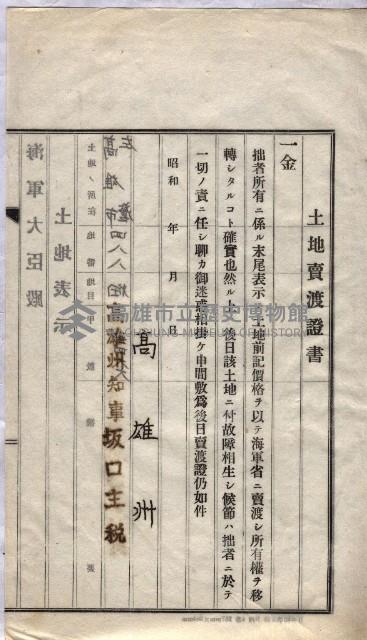 土地賣渡證書
一金
拙者所有ニ係ル末尾表示ノ土地前記價格ヲ以テ海軍省ニ賣渡シ所有權ヲ移
轉シタルコト確實也然ル上ハ後日該土地ニ付故障相生シ候節ハ拙者ニ於テ
一切ノ責ニ任シ聊カ御迷惑相掛ケ申間敷爲後日賣渡證仍如件
昭和　年　月　日
高雄州
高雄州知事坂口主税
海軍大臣殿
土地表示
土地ノ所在　地番　地目　甲數
高雄市
高雄市立歷史博物館
KAOHSIUNG MUSEUM OF HISTORY